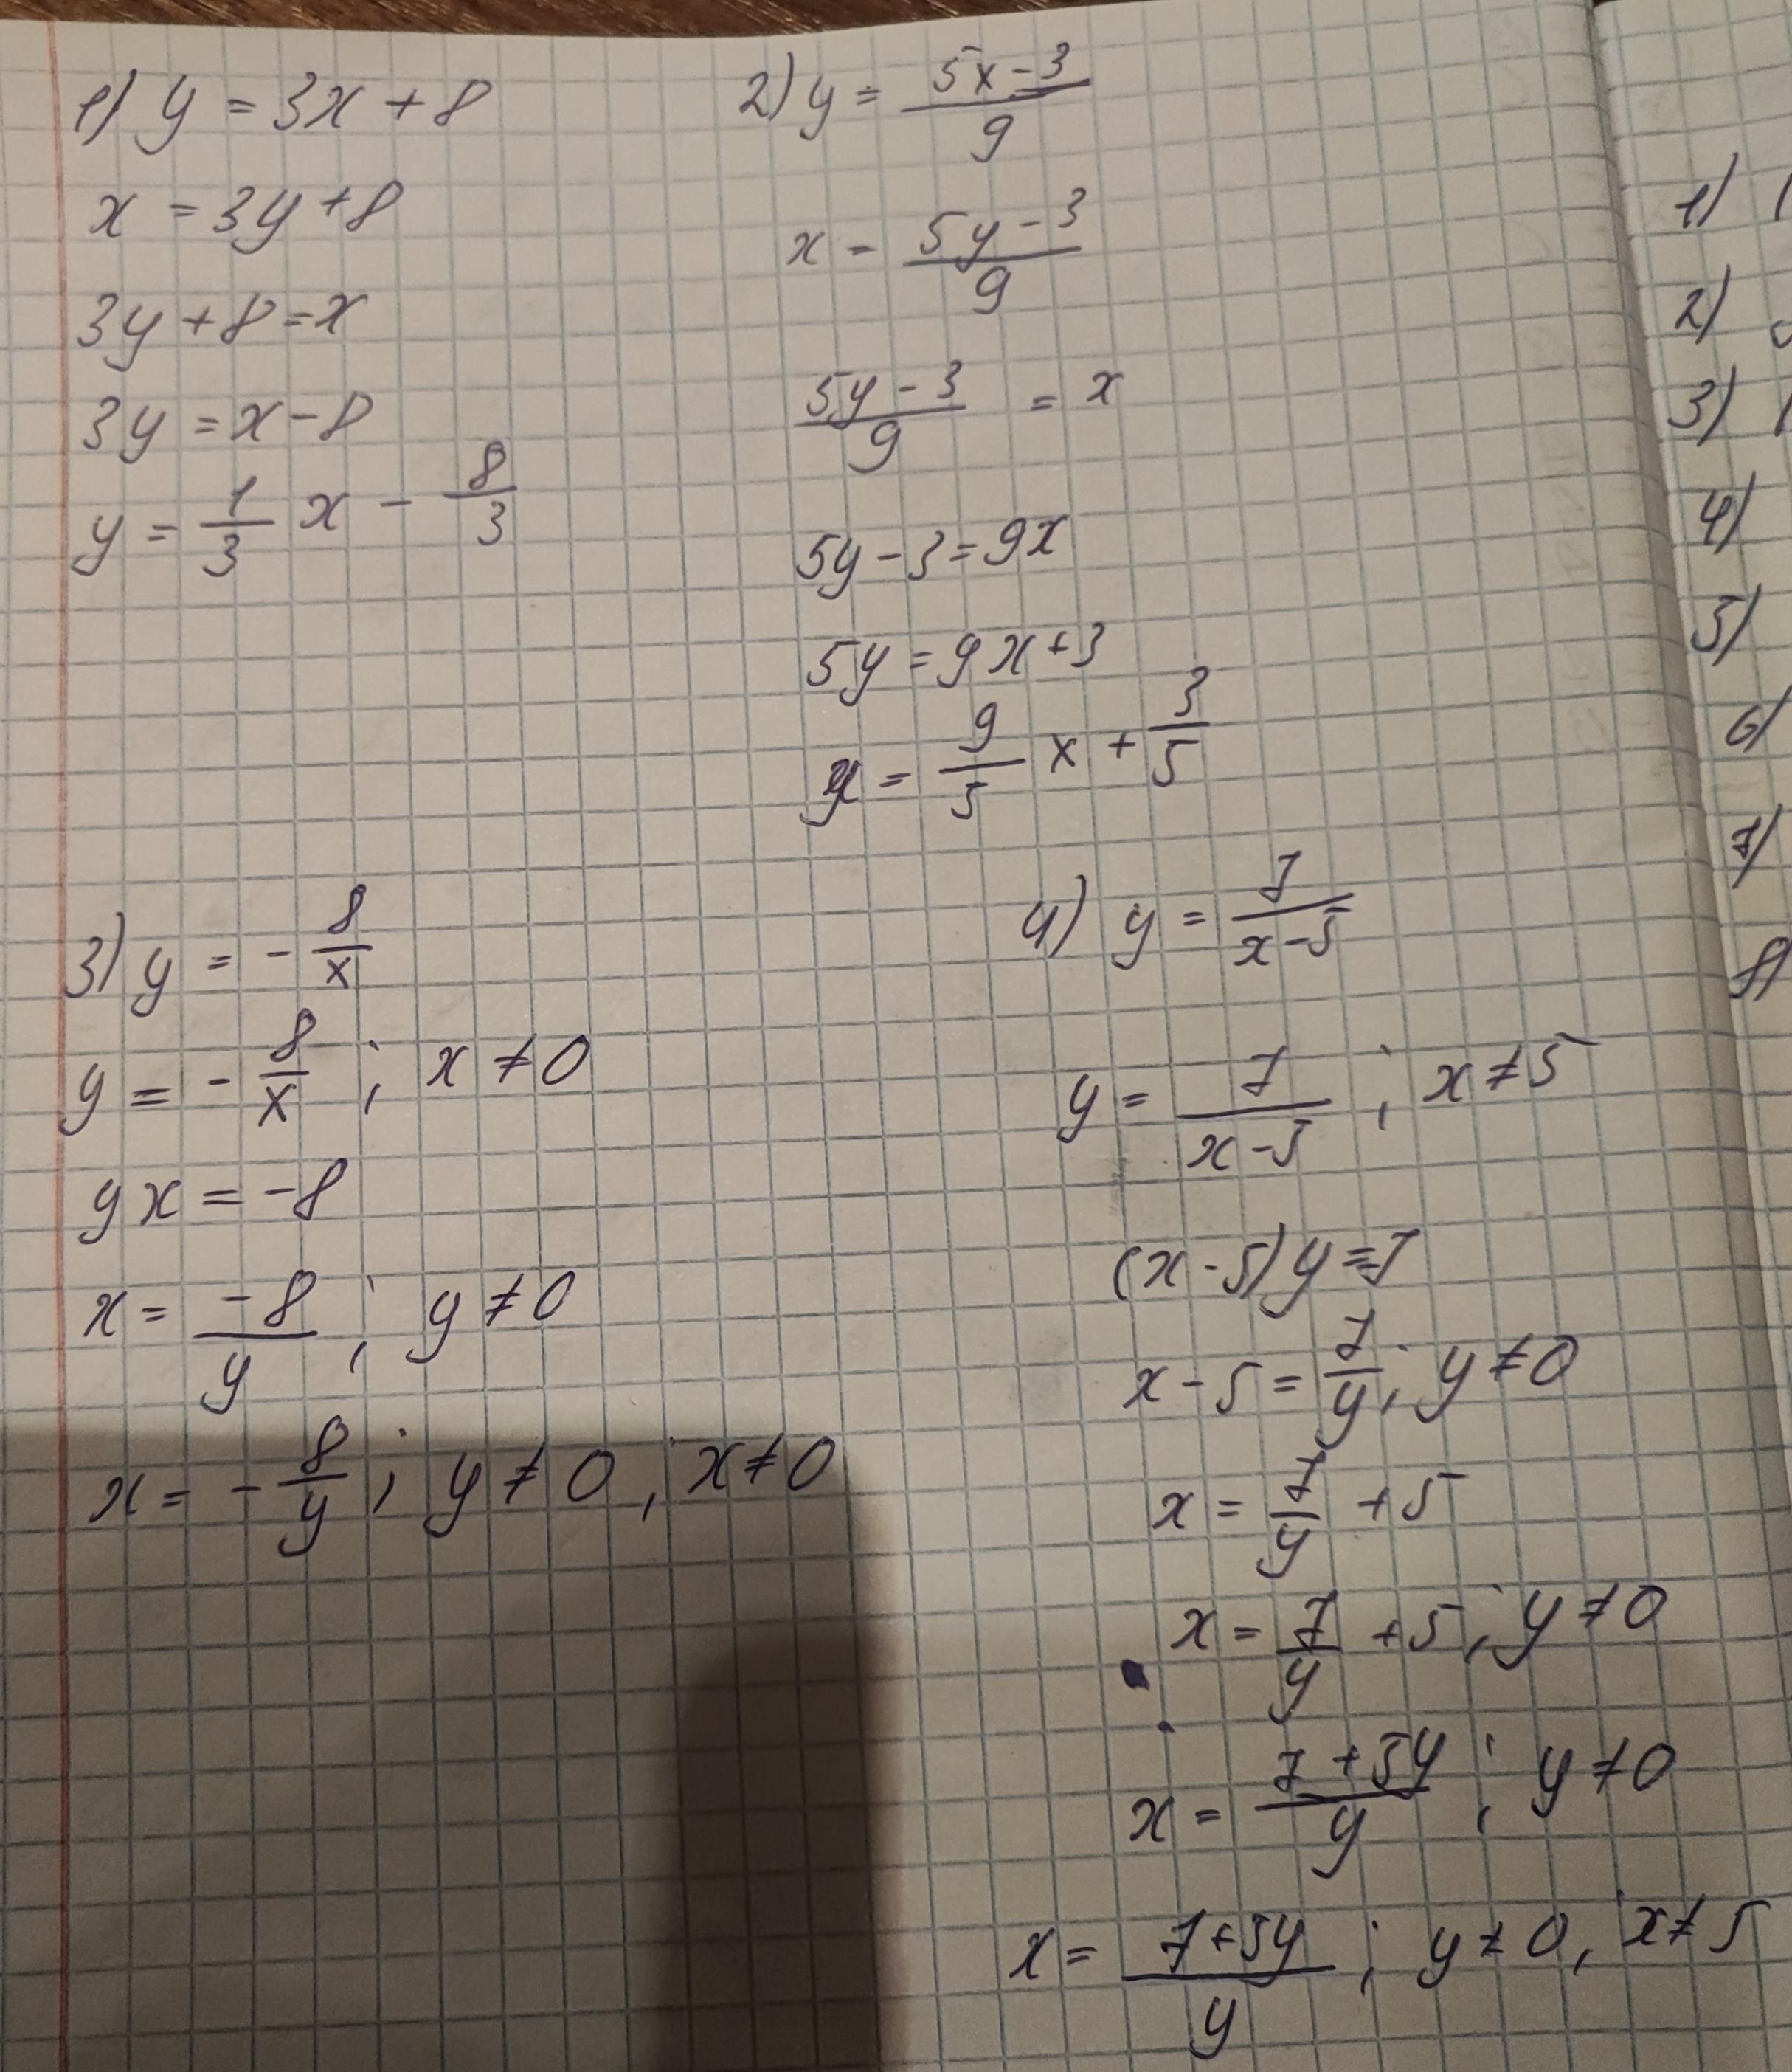 1) y = 3x + 8
x = 3y + 8
3y + 8 = x
3y = x - 8
y = 1/3 x - 8/3
2) y = (5x - 3)/9
x = (5y - 3)/9
(5y - 3)/9 = x
5y - 3 = 9x
5y = 9x + 3
y = 9/5 x + 3/5
3) y = - 8/x
y = - 8/x ; x ≠ 0
yx = -8
x = -8/y ; y ≠ 0
x = - 8/y ; y ≠ 0, x ≠ 0
4) y = 7/(x - 5)
y = 7/(x - 5) ; x ≠ 5
(x - 5) y = 7
x - 5 = 7/y ; y ≠ 0
x = 7/y + 5
x = 7/y + 5 ; y ≠ 0
x = (7 + 5y)/y ; y ≠ 0
x = (7 + 5y)/y ; y ≠ 0, x ≠ 5
1)
2)
3)
4)
5)
6)
7)
8)